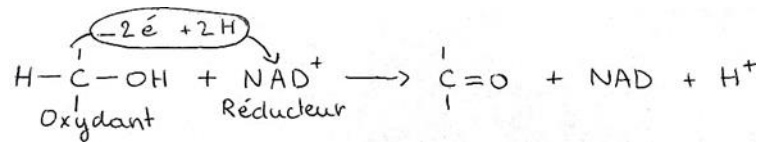 -2 é +2 H
H-C-OH + NAD⁺ → C=O + NAD + H⁺
Oxydant Réducteur